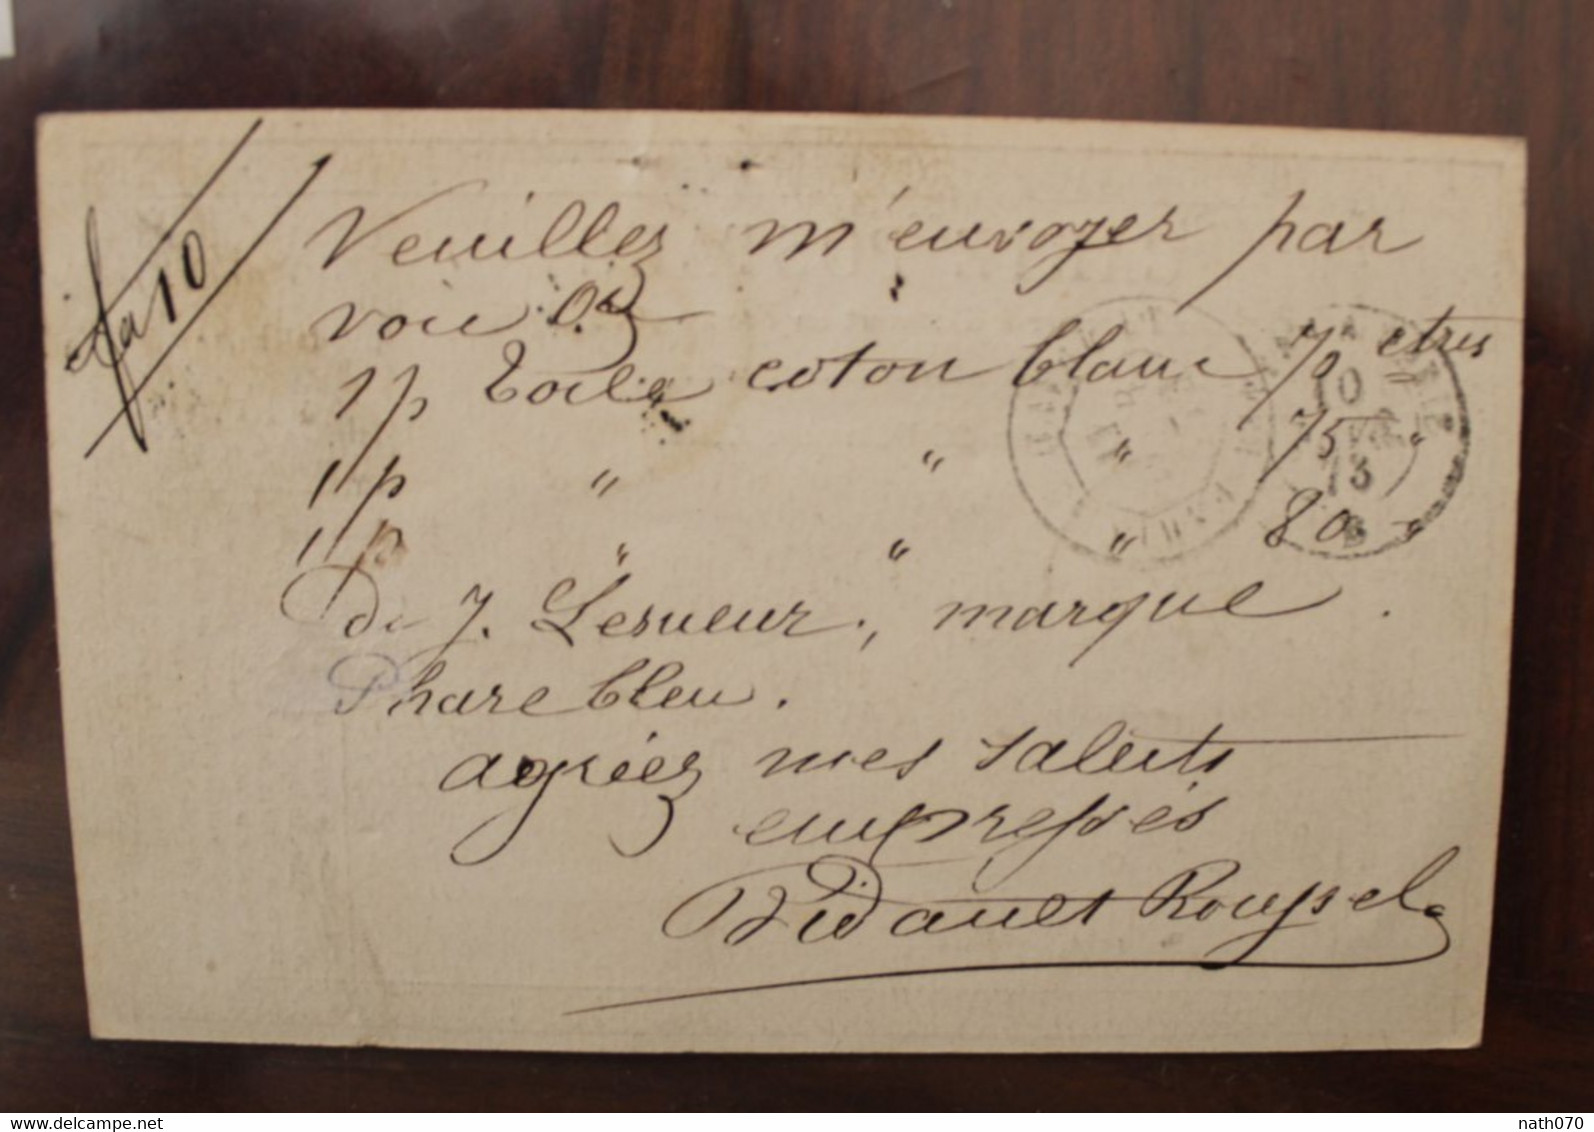 fa 10
Veuillez m'envoyer par
voie
1 p Toile coton blanc 70 ctres
1 p " " " 75 "
1 p " " " 80 "
de J. Lesueur, marque
Phare bleu.
agréez mes saluts
empressés
Vidanet Roussel
nath070